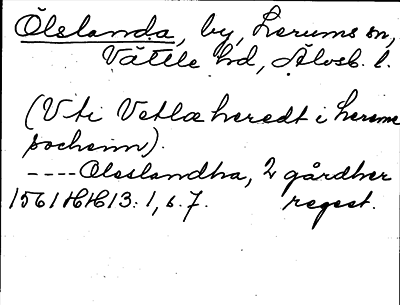 Ölslanda, by, Lerums sn,
Vättle hd, Älvsb. l.
(Uti Vetlæ heredt i Lereme
sochenn).
---- Olsslandha, 2 gårdher
1561 HH 13:1, s. 7. regest.